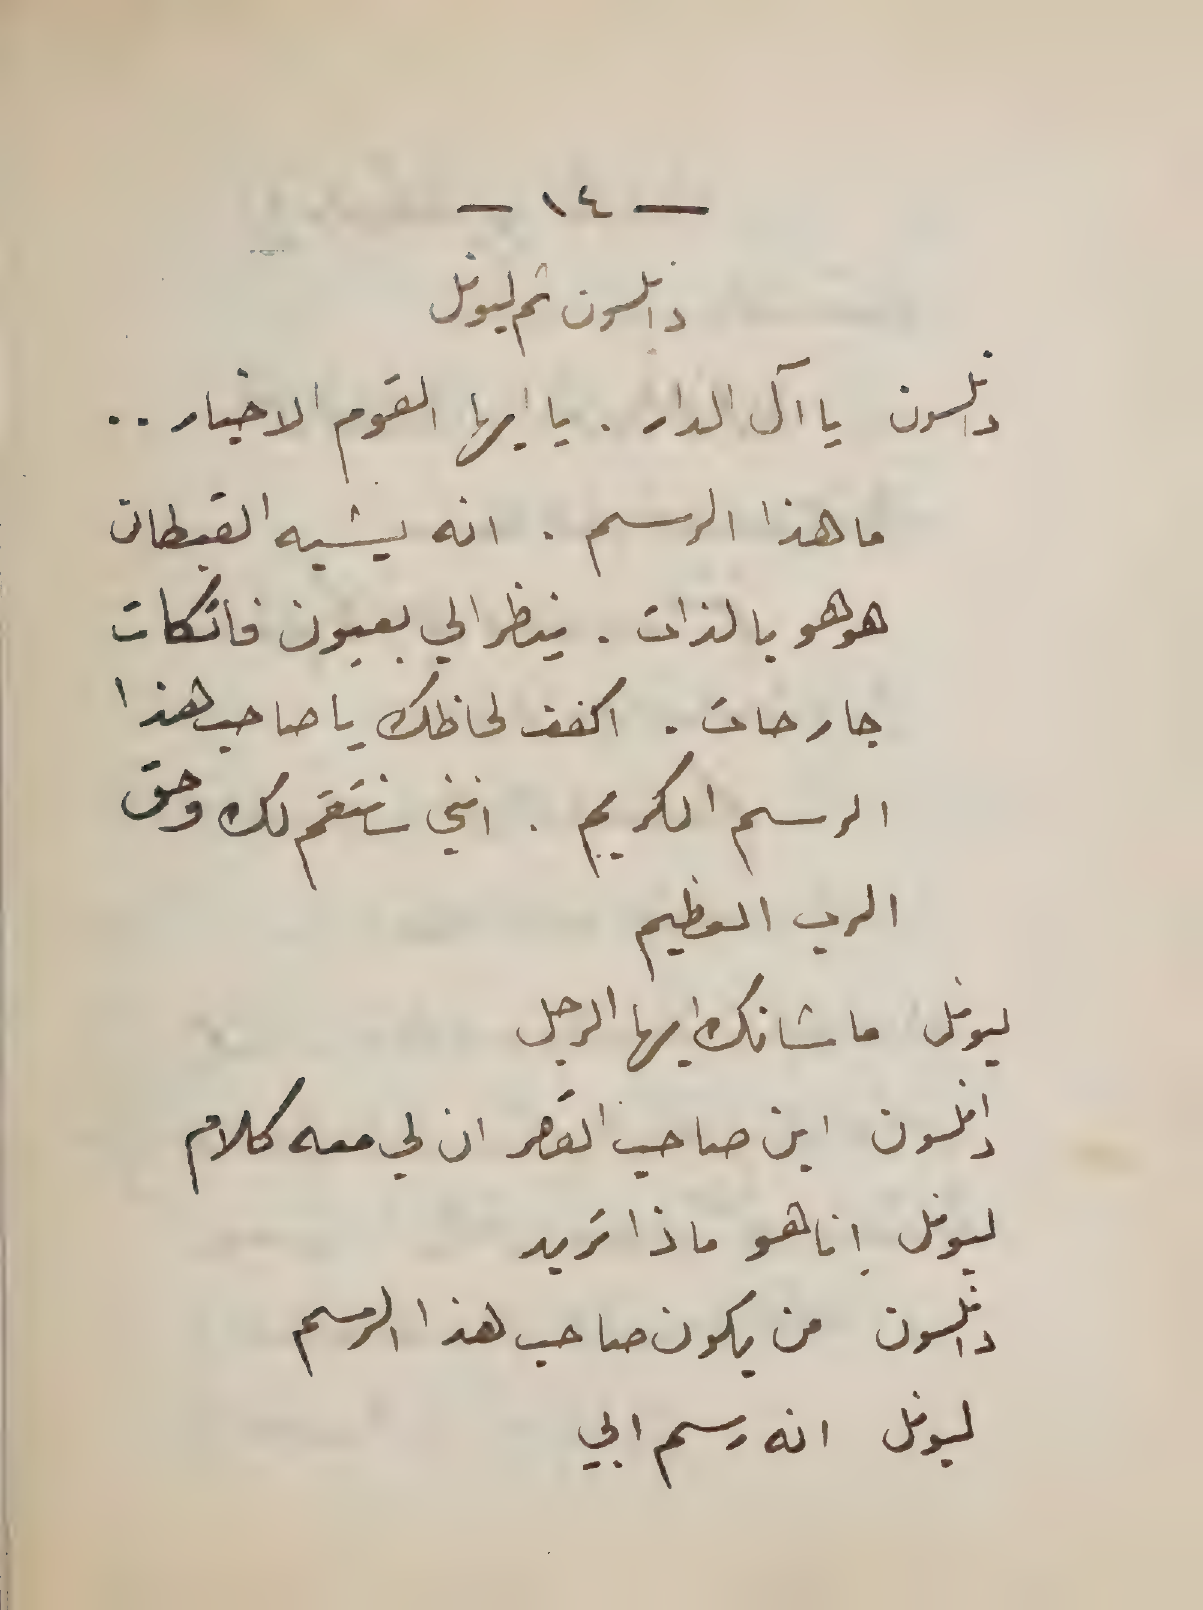 — ١٤ —
دانلسون ثم ليونل
دانلسون يا آل الدار . يا ايها القوم الاخيار ..
ما هذا الرسم . انه يشبه القبطان
هو هو بالذات . ينظر الي بعيون فاتكات
جارحات . اكفف لحاظك يا صاحب هذا
الرسم الكريم . انني سانتقم لك وحق
الرب العظيم
ليونل ما شانك ايها الرجل
دانلسون اين صاحب القصر ان لي معه كلام
ليونل انا هو ماذا تريد
دانلسون من يكون صاحب هذا الرسم
ليونل انه رسم ابي